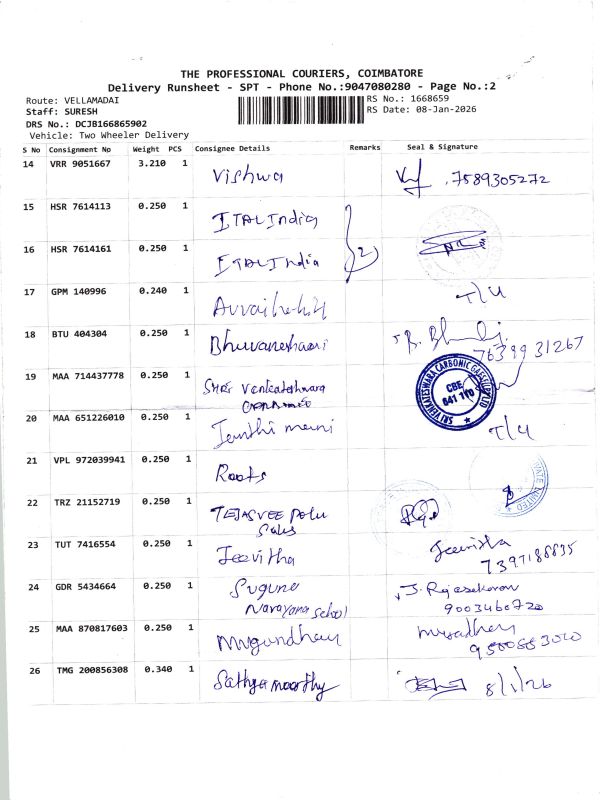 THE PROFESSIONAL COURIERS, COIMBATORE
Delivery Runsheet - SPT - Phone No.:9047080280 - Page No.:2
Route: VELLAMADAI
RS No.: 1668659
Staff: SURESH
RS Date: 08-Jan-2026
DRS No.: DCJB166865902
Vehicle: Two Wheeler Delivery
S No Consignment No Weight PCS Consignee Details Remarks Seal & Signature
14 VRR 9051667 3.210 1 Vishwa .7589305272
15 HSR 7614113 0.250 1 ITAL India
16 HSR 7614161 0.250 1 ITAL India 2
17 GPM 140996 0.240 1 T/U
18 BTU 404304 0.250 1 Bhuvaneshwari B.
7639931267
19 MAA 714437778 0.250 1 Shri Venkateshwara
SRI VENKATESWARA CARBONIC GASES (P) LTD
CBE
641 110
20 MAA 651226010 0.250 1 Janthi mani T/U
21 VPL 972039941 0.250 1 Roots
22 TRZ 21152719 0.250 1 TEJASVEE Polu
Sales
23 TUT 7416554 0.250 1 Jeevitha Jeevitha
7397188835
24 GDR 5434664 0.250 1 Suguna J. Rajasekaran
Narayana School 9003460720
25 MAA 870817603 0.250 1
9500553020
26 TMG 200856308 0.340 1 Sathyamoorthy 8/1/26